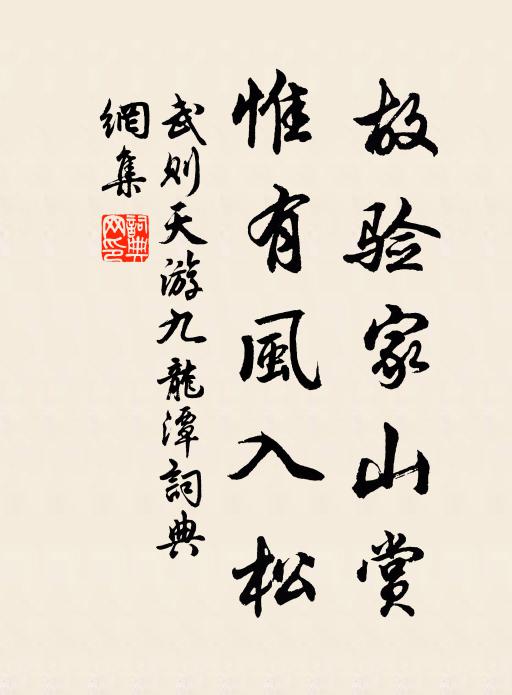 故验家山赏
惟有風入松
武则天游九龍潭詞典
網集
詞典
网印